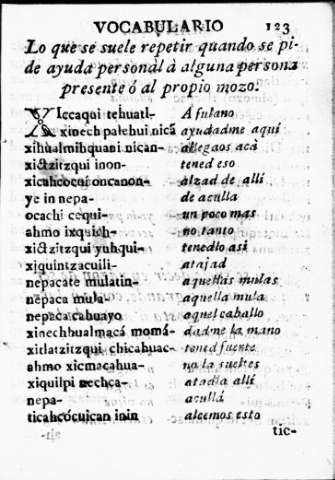 VOCABULARIO 123
Lo que se suele repetir quando se pi-
de ayuda personal à alguna persona
presente ó al propio mozo.
XIccaqui tehuatl- A fulano
xinech palehui nicã ayudadme aqui
xihualmihquani nican- allegaos acà
xictzitzqui inon- tened eso
xicahcocui oncanon- alzad de alli
ye in nepa- de aculla
ocachi cequi- un poco mas
ahmo ixquich- no tanto
xictzitzqui yuhqui- tenedlo asi
xiquintzacuili- atajad
nepacate mulatin- aquellas mulas
nepaca mula- aquella mula
nepaca cahuayo aquel caballo
xinechhualmacá momá- dadme la mano
xitlatzitzqui chicahuac- tened fuente
ahmo xicmacahua- no la sueltes
xiquilpi nechca- atadla alli
nepa- acullá
ticahcócuican inin alcemos esto
tic-